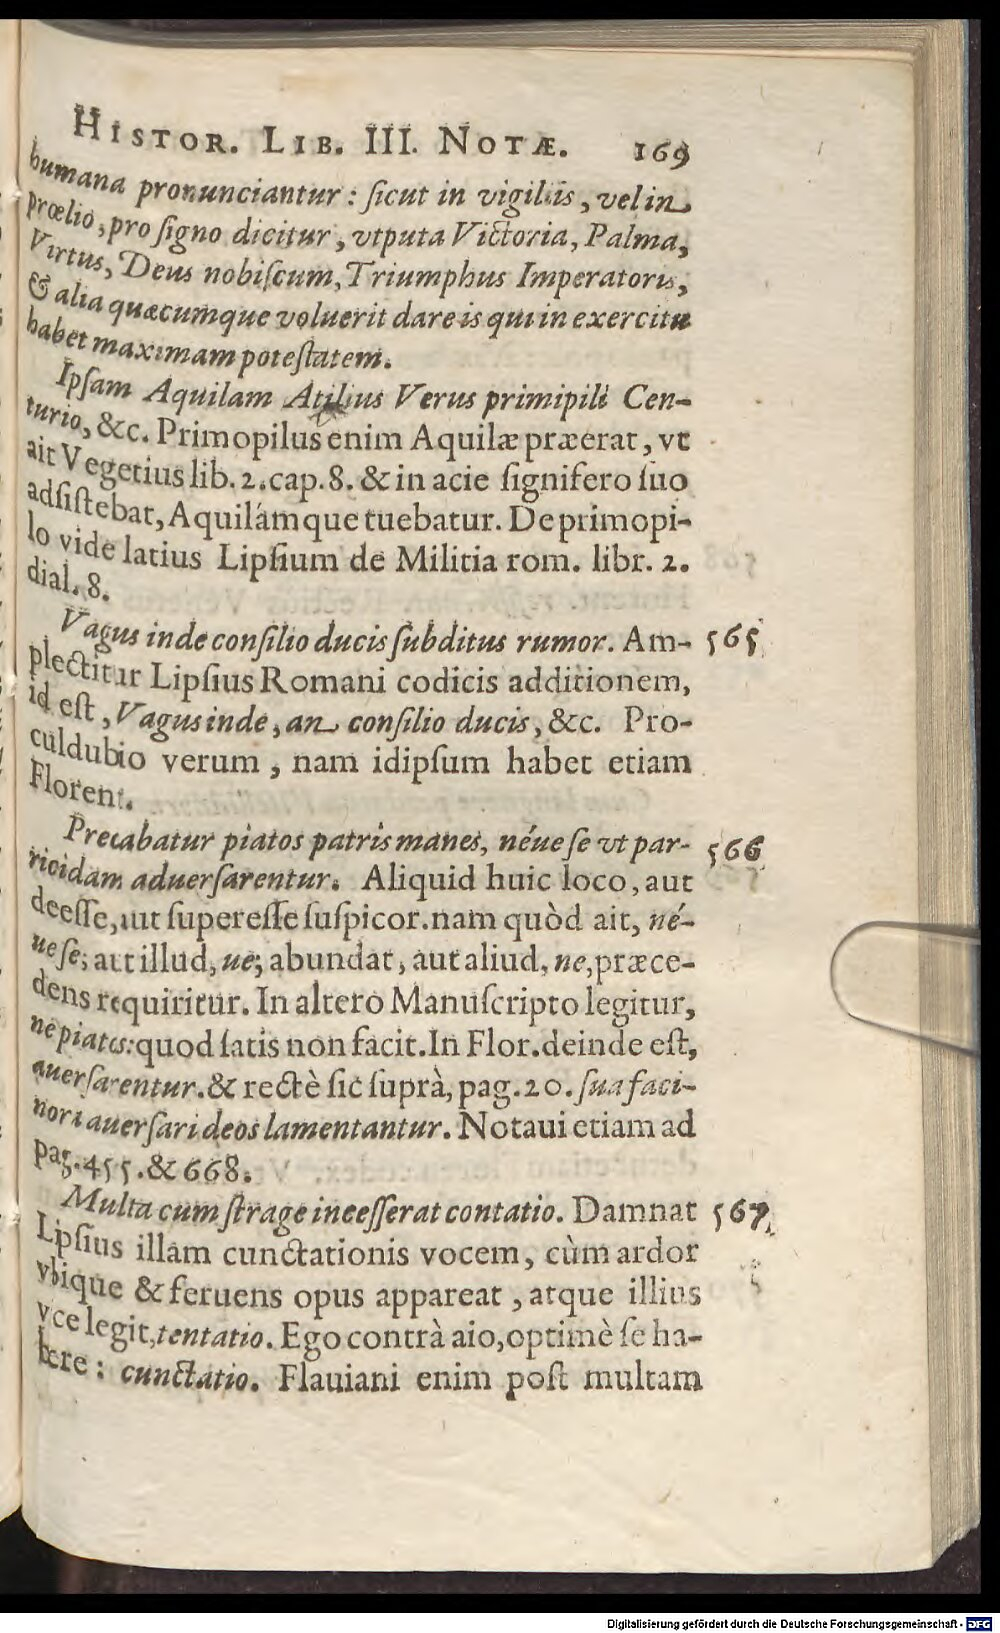 HISTOR. LIB. III. NOTÆ. 169
humana pronunciantur: ſicut in vigiliis, vel in
prœlio, pro ſigno dicitur, vtputa Victoria, Palma,
Virtus, Deus nobiſcum, Triumphus Imperatoris,
& alia quæcumque voluerit dare is qui in exercitu
habet maximam poteſtatem.
Ipſam Aquilam Atilius Verus primipili Cen-
turio, &c. Primopilus enim Aquilæ præerat, vt
ait Vegetius lib. 2. cap. 8. & in acie ſignifero ſuo
adſiſtebat, Aquilámque tuebatur. De primopi-
lo vide latius Lipſium de Militia rom. libr. 2.
dial. 8.
Vagus inde conſilio ducis ſubditus rumor. Am- 565
plectitur Lipſius Romani codicis additionem,
id eſt, Vagus inde, an conſilio ducis, &c. Pro-
culdubio verum, nam idipſum habet etiam
Florent.
Precabatur piatos patris manes, néue ſe vt par- 566
ricidam aduerſarentur. Aliquid huic loco, aut
deeſſe, aut ſupereſſe ſuſpicor. nam quòd ait, né-
ue ſe; aut illud, ue; abundat, aut aliud, ne, præce-
dens requiritur. In altero Manuſcripto legitur,
ne piatos: quod ſatis non facit. In Flor. deinde eſt,
auerſarentur. & rectè ſic ſuprà, pag. 20. ſua faci-
nori auerſari deos lamentantur. Notaui etiam ad
pag. 455. & 668.
Multa cum ſtrage inceſſerat contatio. Damnat 567
Lipſius illam cunctationis vocem, cùm ardor
vbique & feruens opus appareat, atque illius
vce legit, tentatio. Ego contrà aio, optimè ſe ha-
bere: cunctatio. Flauiani enim poſt multam
Digitalisierung gefördert durch die Deutsche Forschungsgemeinschaft - DFG